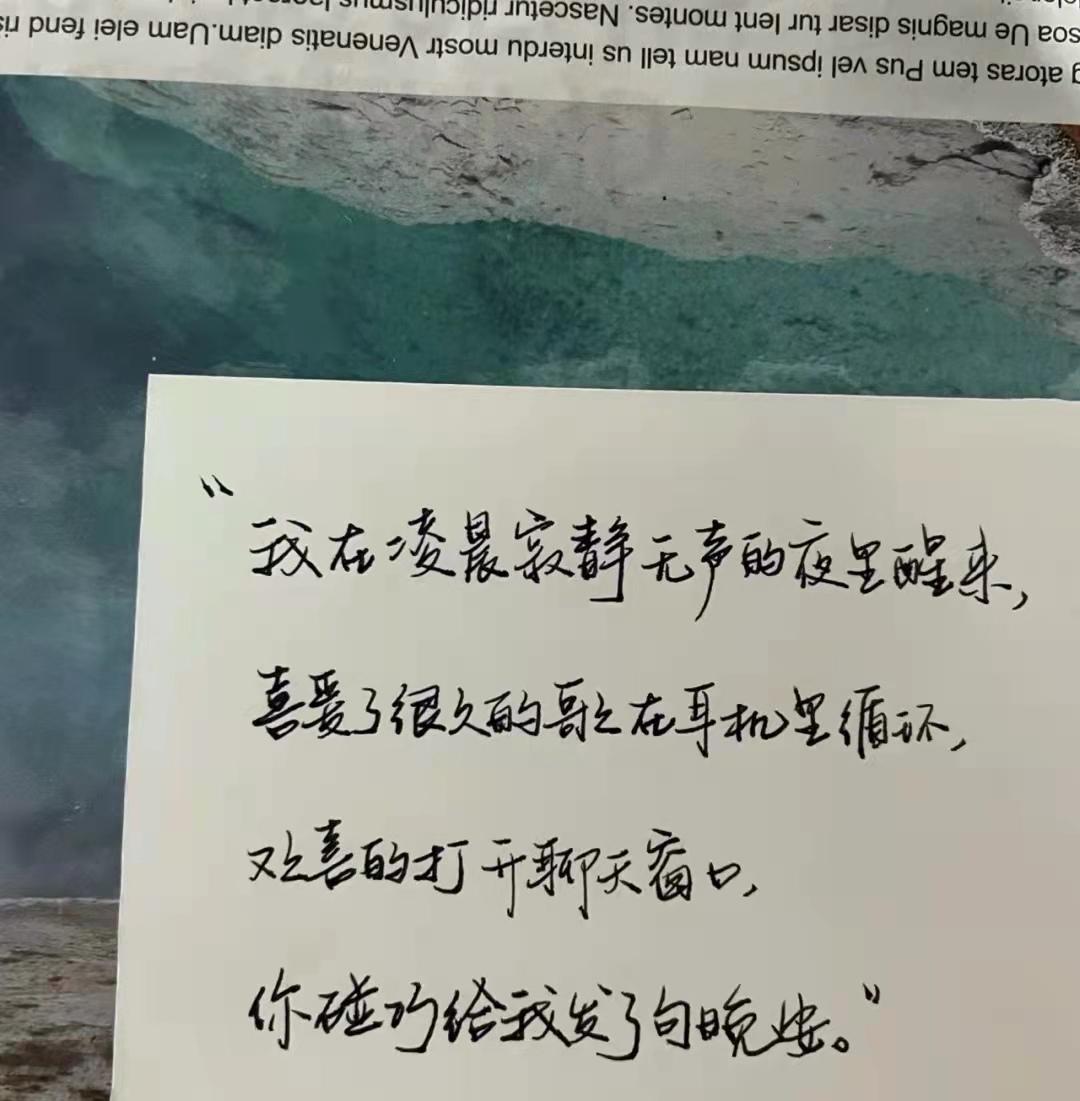 soa Ue magnis disar tur lent montes. Nascetur ridiculusmus
atoras tem Pus vel ipsum nam tell us interdu mostr Venenatis diam.Uam elei fend
“我在凌晨寂静无声的夜里醒来，
喜爱了很久的歌在耳机里循环，
欢喜的打开聊天窗口，
你碰巧给我发了句晚安。”